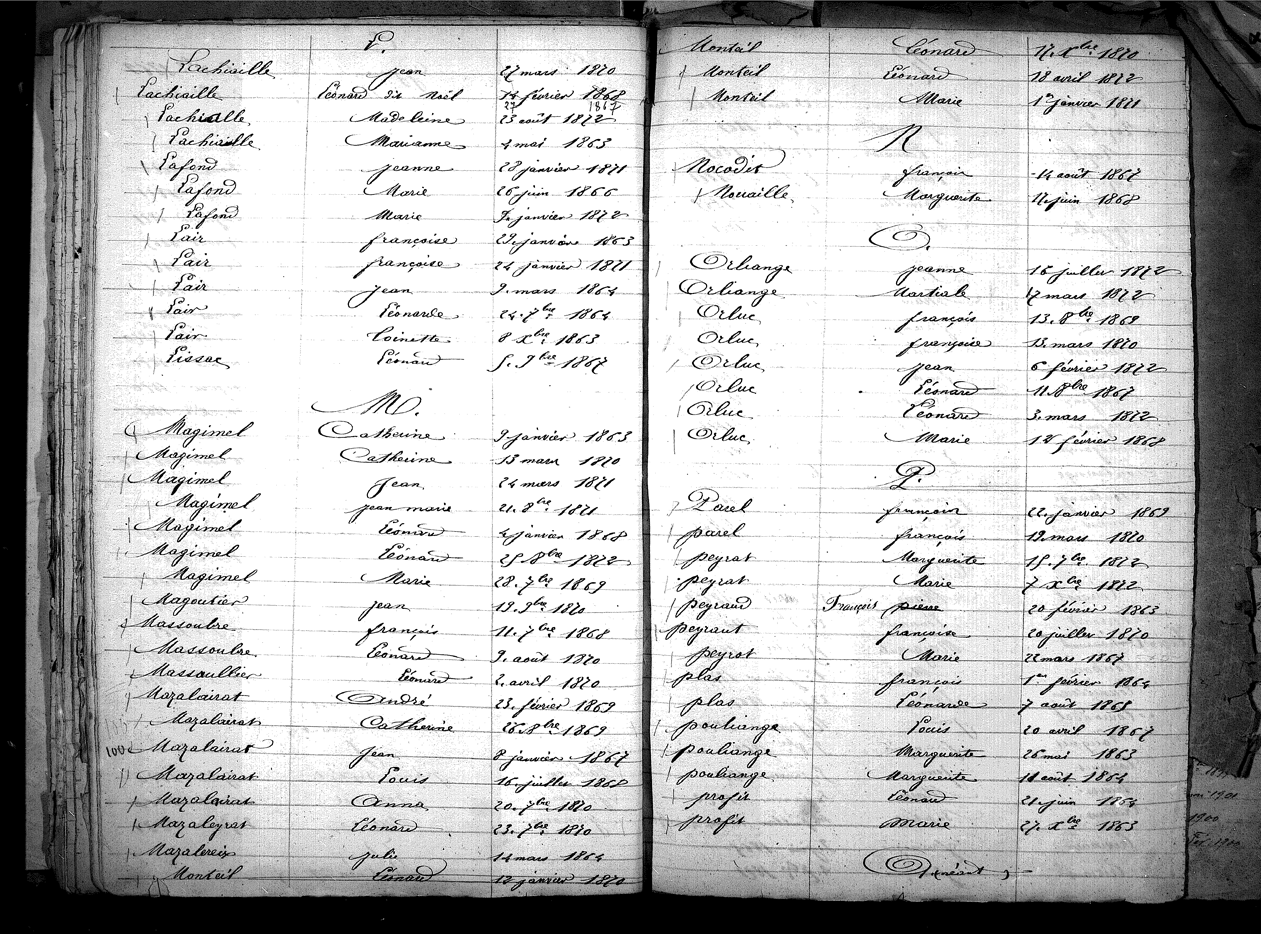 L.
Lachiaille Jean 27 mars 1870
Lachiaille Léonard dit Noël 14 février 1868
27 1867
Lachialle Madeleine 23 août 1872
Lachiaille Marianne 4 mai 1863
Lafond Jeanne 28 janvier 1871
Lafond Marie 26 juin 1866
Lafond Marie 9. janvier 1872
Lair françoise 29. janvier 1863
Lair françoise 24 janvier 1871
Lair Jean 9. mars 1864
Lair Léonarde 24. 7bre 1864
Lair Toinette 8 Xbre 1863
Lissac Léonard 5. 9bre 1867
M.
Magimel Catherine 9 janvier 1863
Magimel Catherine 13 mars 1870
Magimel Jean 24 mars 1871
Magimel jean marie 21. 8bre 1871
Magimel Léonard 4 janvier 1868
Magimel Léonard 25 8bre 1872
Magimel Marie 28. 7bre 1869
Magoutier Jean 19. 9bre 1870
Massoubre françois 11. 7bre 1868
Massoubre Léonard 9. août 1870
Massoullier Léonard 2. avril 1870
Mazalairat André 23. février 1869
Mazalairat Catherine 26. 8bre 1869
100 Mazalairat Jean 8 janvier 1867
Mazalairat Louis 16. juillet 1868
Mazalairat Anna 20. 7bre 1870
Mazaleyrat Léonard 23. 7bre 1870
Mazalereix julie 14 mars 1864
Monteil Léonard 12 janvier 1870
Monteil Léonard 17. Xbre 1870
Monteil Léonard 18 avril 1872
Monteil Marie 1er janvier 1871
N
Nocodet françois 14 août 1867
Nouaille Marguerite 17. juin 1868
O.
Orliange jeanne 16 juillet 1872
Orliange Martiale 7 mars 1872
Orluc françois 13. 8bre 1869
Orluc françoise 13. mars 1870
Orluc jean 6 février 1872
Orluc Léonard 11 8bre 1867
Orluc Léonard 3. mars 1872
Orluc Marie 12 février 1868
P.
Parel françois 22. janvier 1869
parel françois 19. mars 1870
peyrat Marguerite 15. 7bre 1872
peyrat Marie 7 Xbre 1872
peyraud François pierre 20 février 1863
peyraut françoise 20 juillet 1870
peyrot Marie 22 mars 1867
plas françois 1er février 1864
plas Léonarde 7 août 1863
pouliange Louis 20 avril 1867
pouliange Marguerite 26 mai 1863
pouliange Marguerite 11 août 1864
profit Léonard 21. juin 1864
profit Marie 27. Xbre 1863
Q (néant)
1901
1900
1900